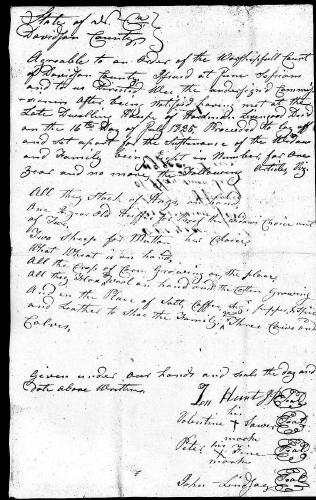 State of N. C.
Davidson County
Agreable to an Order of the Worshipfull Court
of Davidson County Issued at June Sessions
and to us Directed We the undersigned Commis
sioners After being Notifid having met at the
Late Dwelling House of Hardman Livengood Decd
on the 16th Day of July 1835 Proceeded to Lay off
and set apart for the Sustenance of the Widow
and Family being in Number for One
Year and no more the Following Articles Viz
All they Stock of Hogs
One 2 year Old Heiffer the Widow Choice out
of Two,
Two Sheep for Mutton her Choice
What Wheat is on hand
All the Crop of Corn Growing on the place
All they Flax, Wool on hand and the Cotton Growing
And in the Place of Salt Coffee pepper & Spice
and Leather to Shoe the Family, Three Cows and
Calves,
Given under our hands and seals the day and
date above Written
Jos Hunt J.P. Seal
his
Valentine + Sawer Seal
mark
his
Peter X Fine Seal
mark
John Lindsay Seal